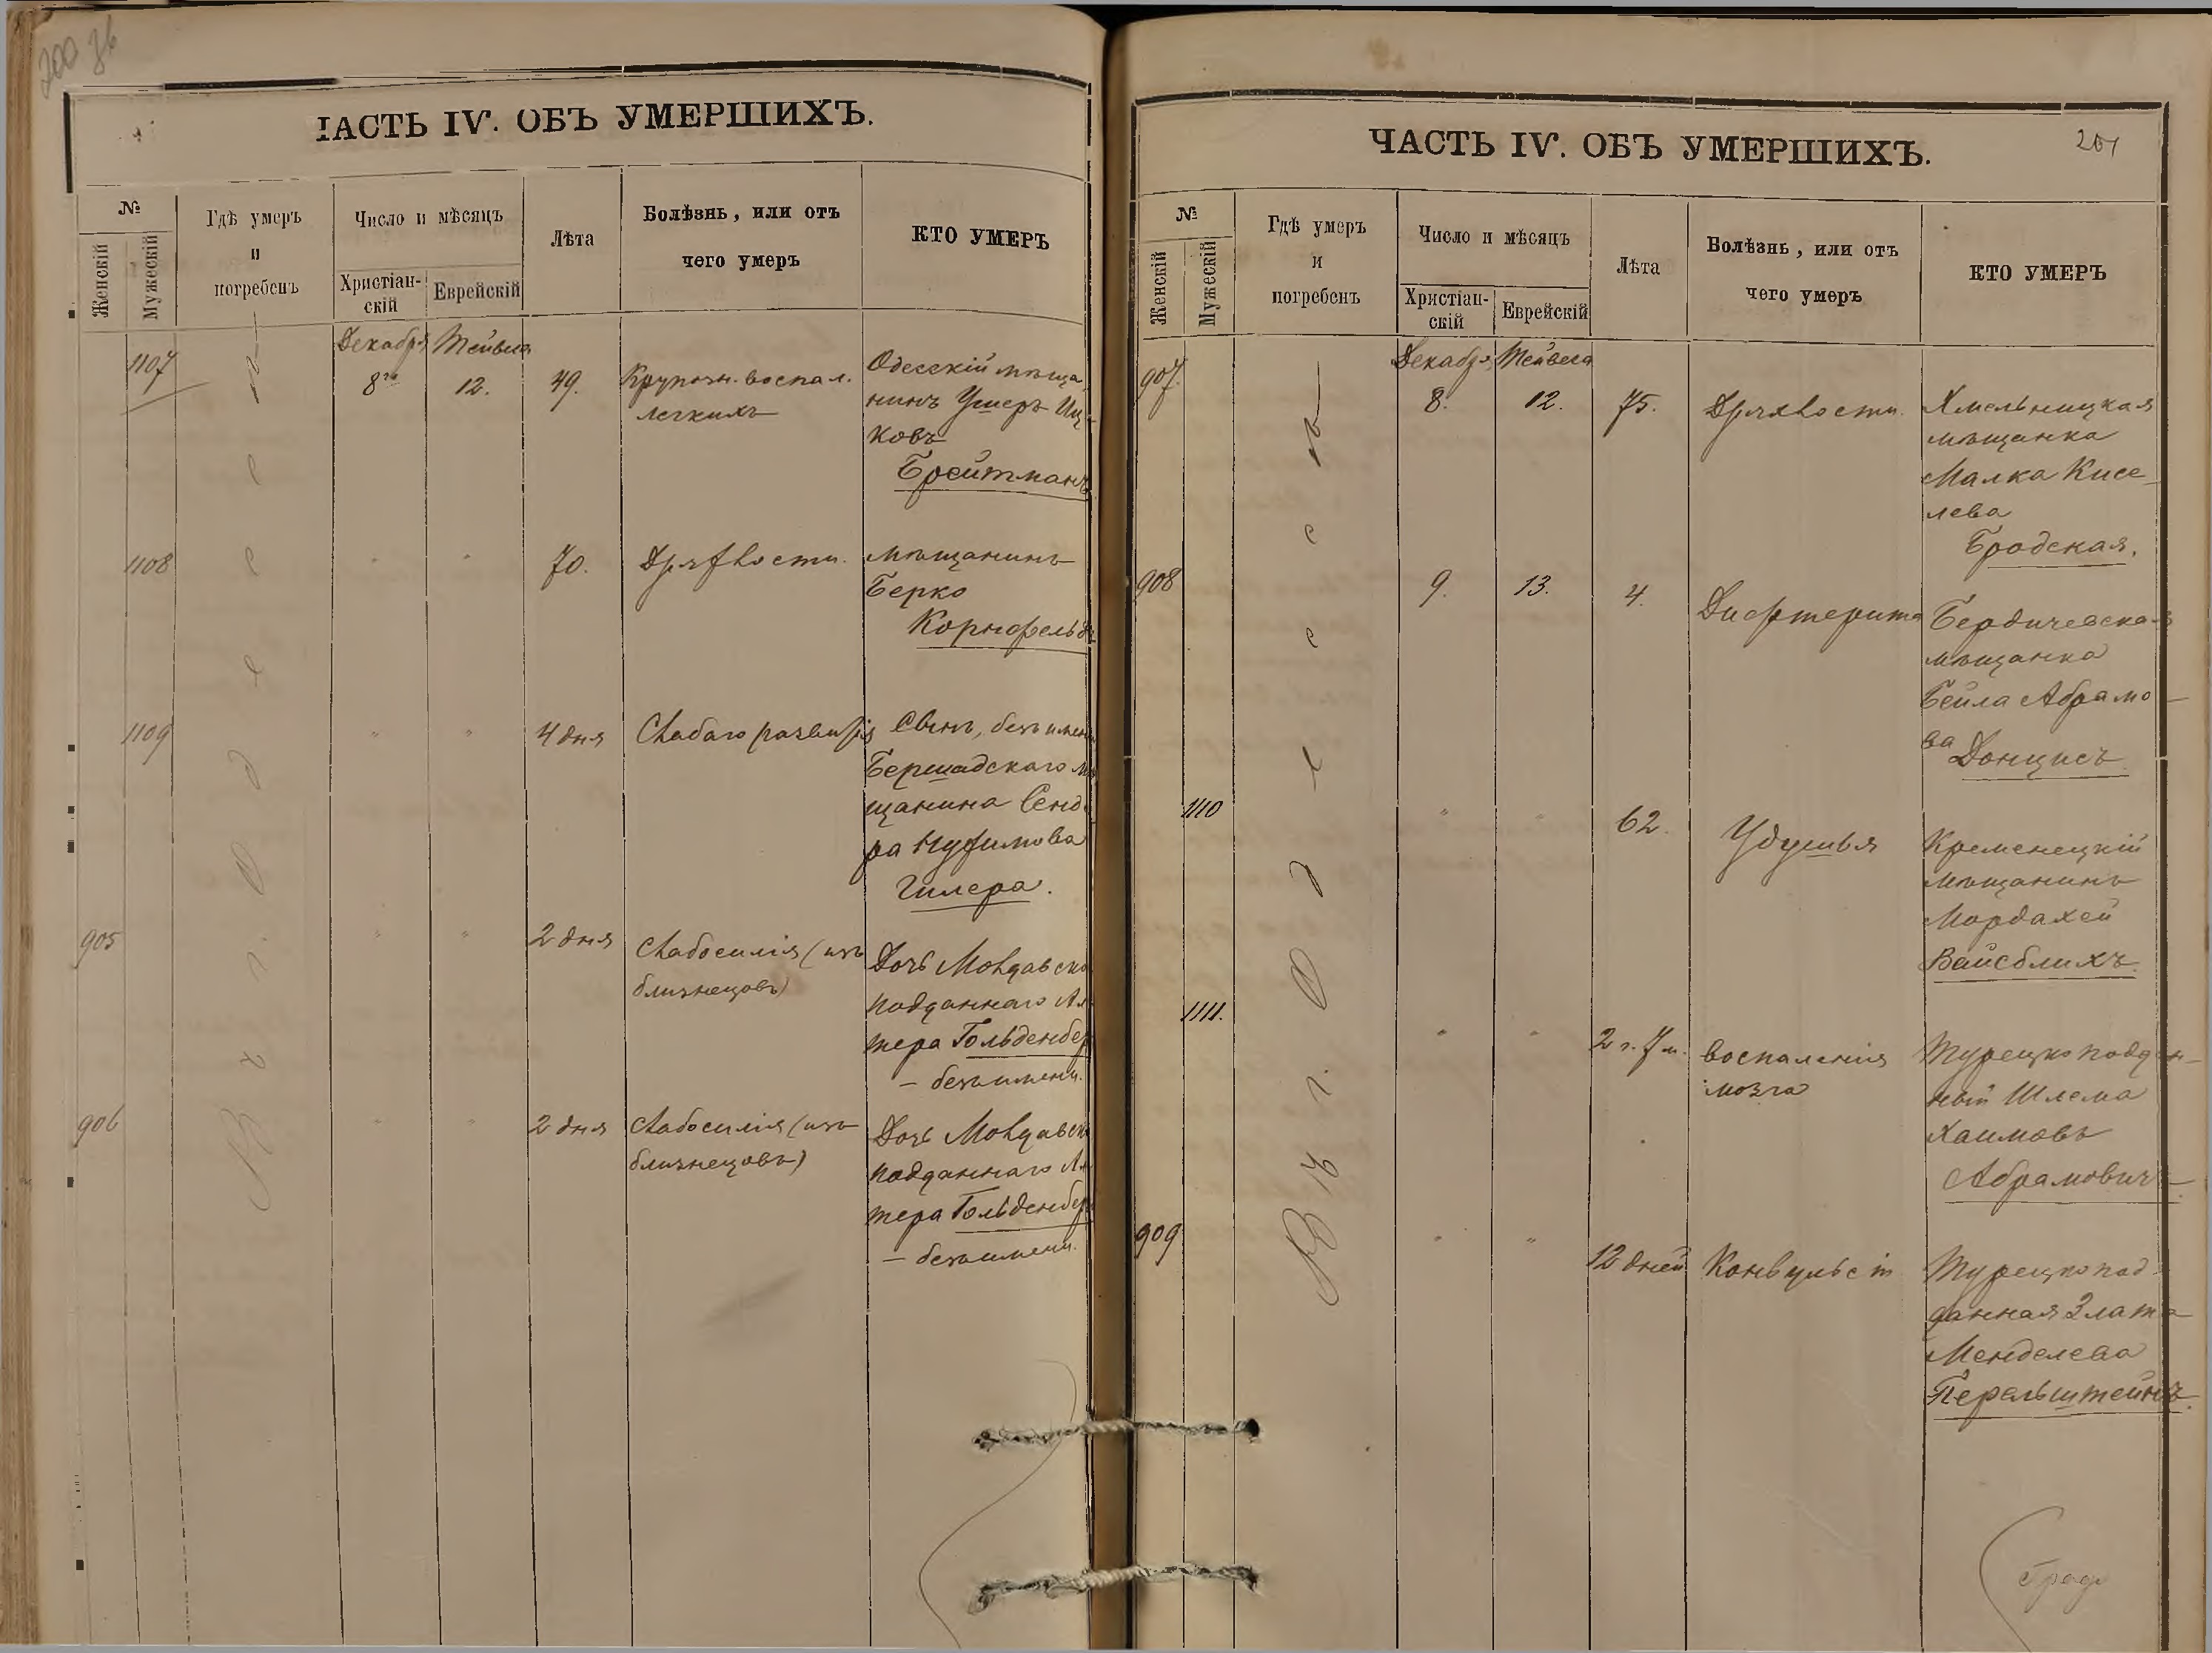 200 зв
ЧАСТЬ IV. ОБЪ УМЕРШИХЪ.
№
Женскій
Мужескій
Гдѣ умеръ
и
погребенъ
Число и мѣсяцъ
Христіан-
скій
Еврейскій
Лѣта
Болѣзнь, или отъ
чего умеръ
КТО УМЕРЪ
Въ г. Одессѣ
Декабря
Тейвеса
1107
8го
12.
49.
Крупозн. воспал.
легкихъ
Одесскій мѣща
нинъ Ушеръ Иц-
ковъ
Брейтманъ
1108
"
"
70.
Дряхлости.
мѣщанинъ
Берко
Корнфельдъ
1109
"
"
4 дня
Слабаго развитія
Сынъ, безъ имени
Бершадскаго мѣ
щанина Сенде
ра Нухимова
Гилера.
905
"
"
2 дня
Слабосилія (изъ
близнецовъ)
Дочь Молдавско
подданнаго Ал
тера Гольденбер
– безъ имени.
906
"
"
2 дня
Слабосилія (изъ
близнецовъ)
Дочь Молдавско
подданнаго Ал
тера Гольденбер
– безъ имени.
201
ЧАСТЬ IV. ОБЪ УМЕРШИХЪ.
№
Женскій
Мужескій
Гдѣ умеръ
и
погребенъ
Число и мѣсяцъ
Христіан-
скій
Еврейскій
Лѣта
Болѣзнь, или отъ
чего умеръ
КТО УМЕРЪ
Въ г. Одессѣ
Декабря
Тейвеса
907.
8.
12.
75.
Дряхлости.
Хмельницкая
мѣщанка
Малка Кисе-
лева
Бродская.
908
9.
13.
4.
Дифтерита
Бердичевская
мѣщанка
Бейла Абрамо-
ва Донцисъ
1110
"
"
62.
Удушья
Кременецкій
мѣщанинъ
Мордахей
Вайсблихъ
1111.
"
"
2 г. 7 м.
воспаленія
мозга
Турецко поддан-
ный Шлема
Хаимовъ
Абрамовичъ
909
"
"
12 дней
Конвульсій
Турецко под
данная Злата
Менделева
Перельштейнъ.